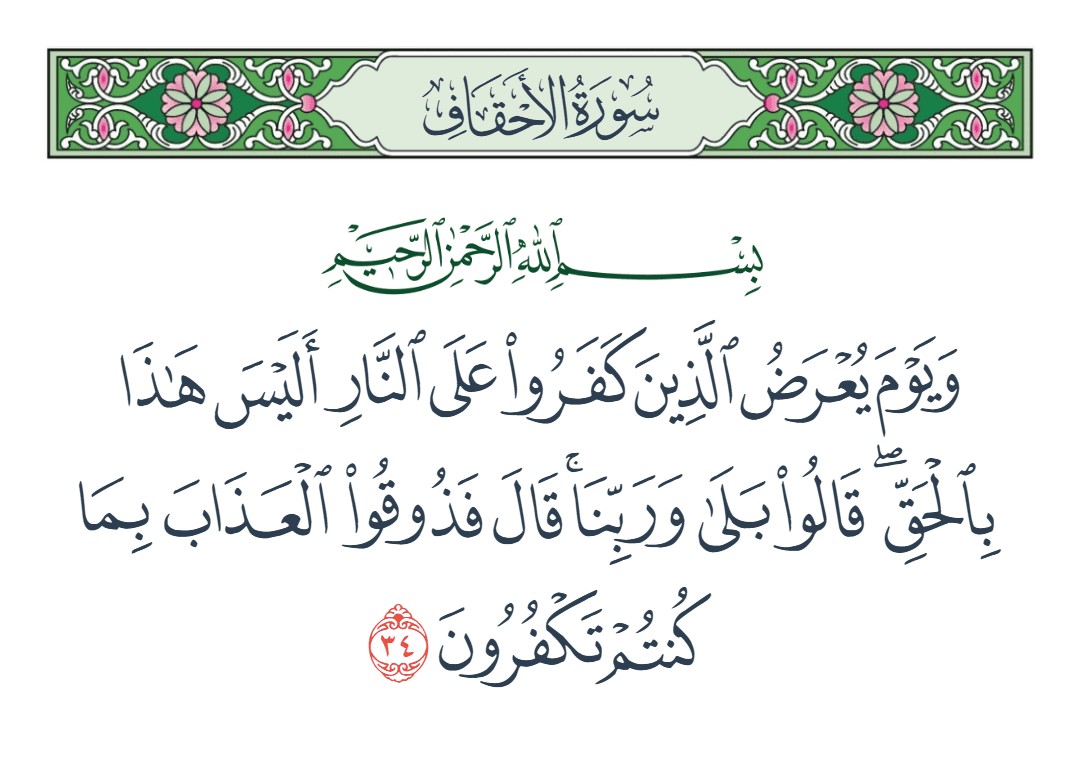 سُورَةُ الأَحْقَافِ
بِسْمِ ٱللَّهِ ٱلرَّحْمَٰنِ ٱلرَّحِيمِ
وَيَوْمَ يُعْرَضُ ٱلَّذِينَ كَفَرُوا۟ عَلَى ٱلنَّارِ أَلَيْسَ هَٰذَا
بِٱلْحَقِّ ۖ قَالُوا۟ بَلَىٰ وَرَبِّنَا ۚ قَالَ فَذُوقُوا۟ ٱلْعَذَابَ بِمَا
كُنتُمْ تَكْفُرُونَ ٣٤